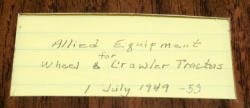 Allied Equipment
for
Wheel & Crawler Tractors
1 July 1949 - 53